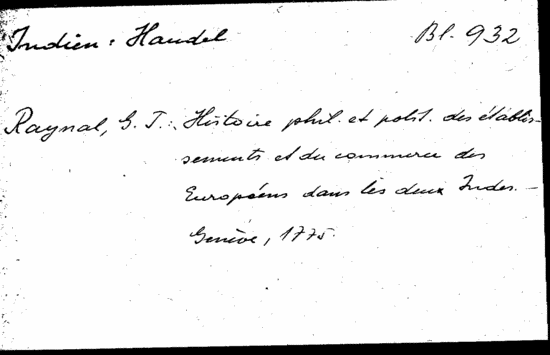 Indien : Handel Bl. 932
Raynal, G. T.: Histoire phil. et polit. des établis-
sements et du commerce des
Européens dans les deux Indes. —
Genève, 1775.